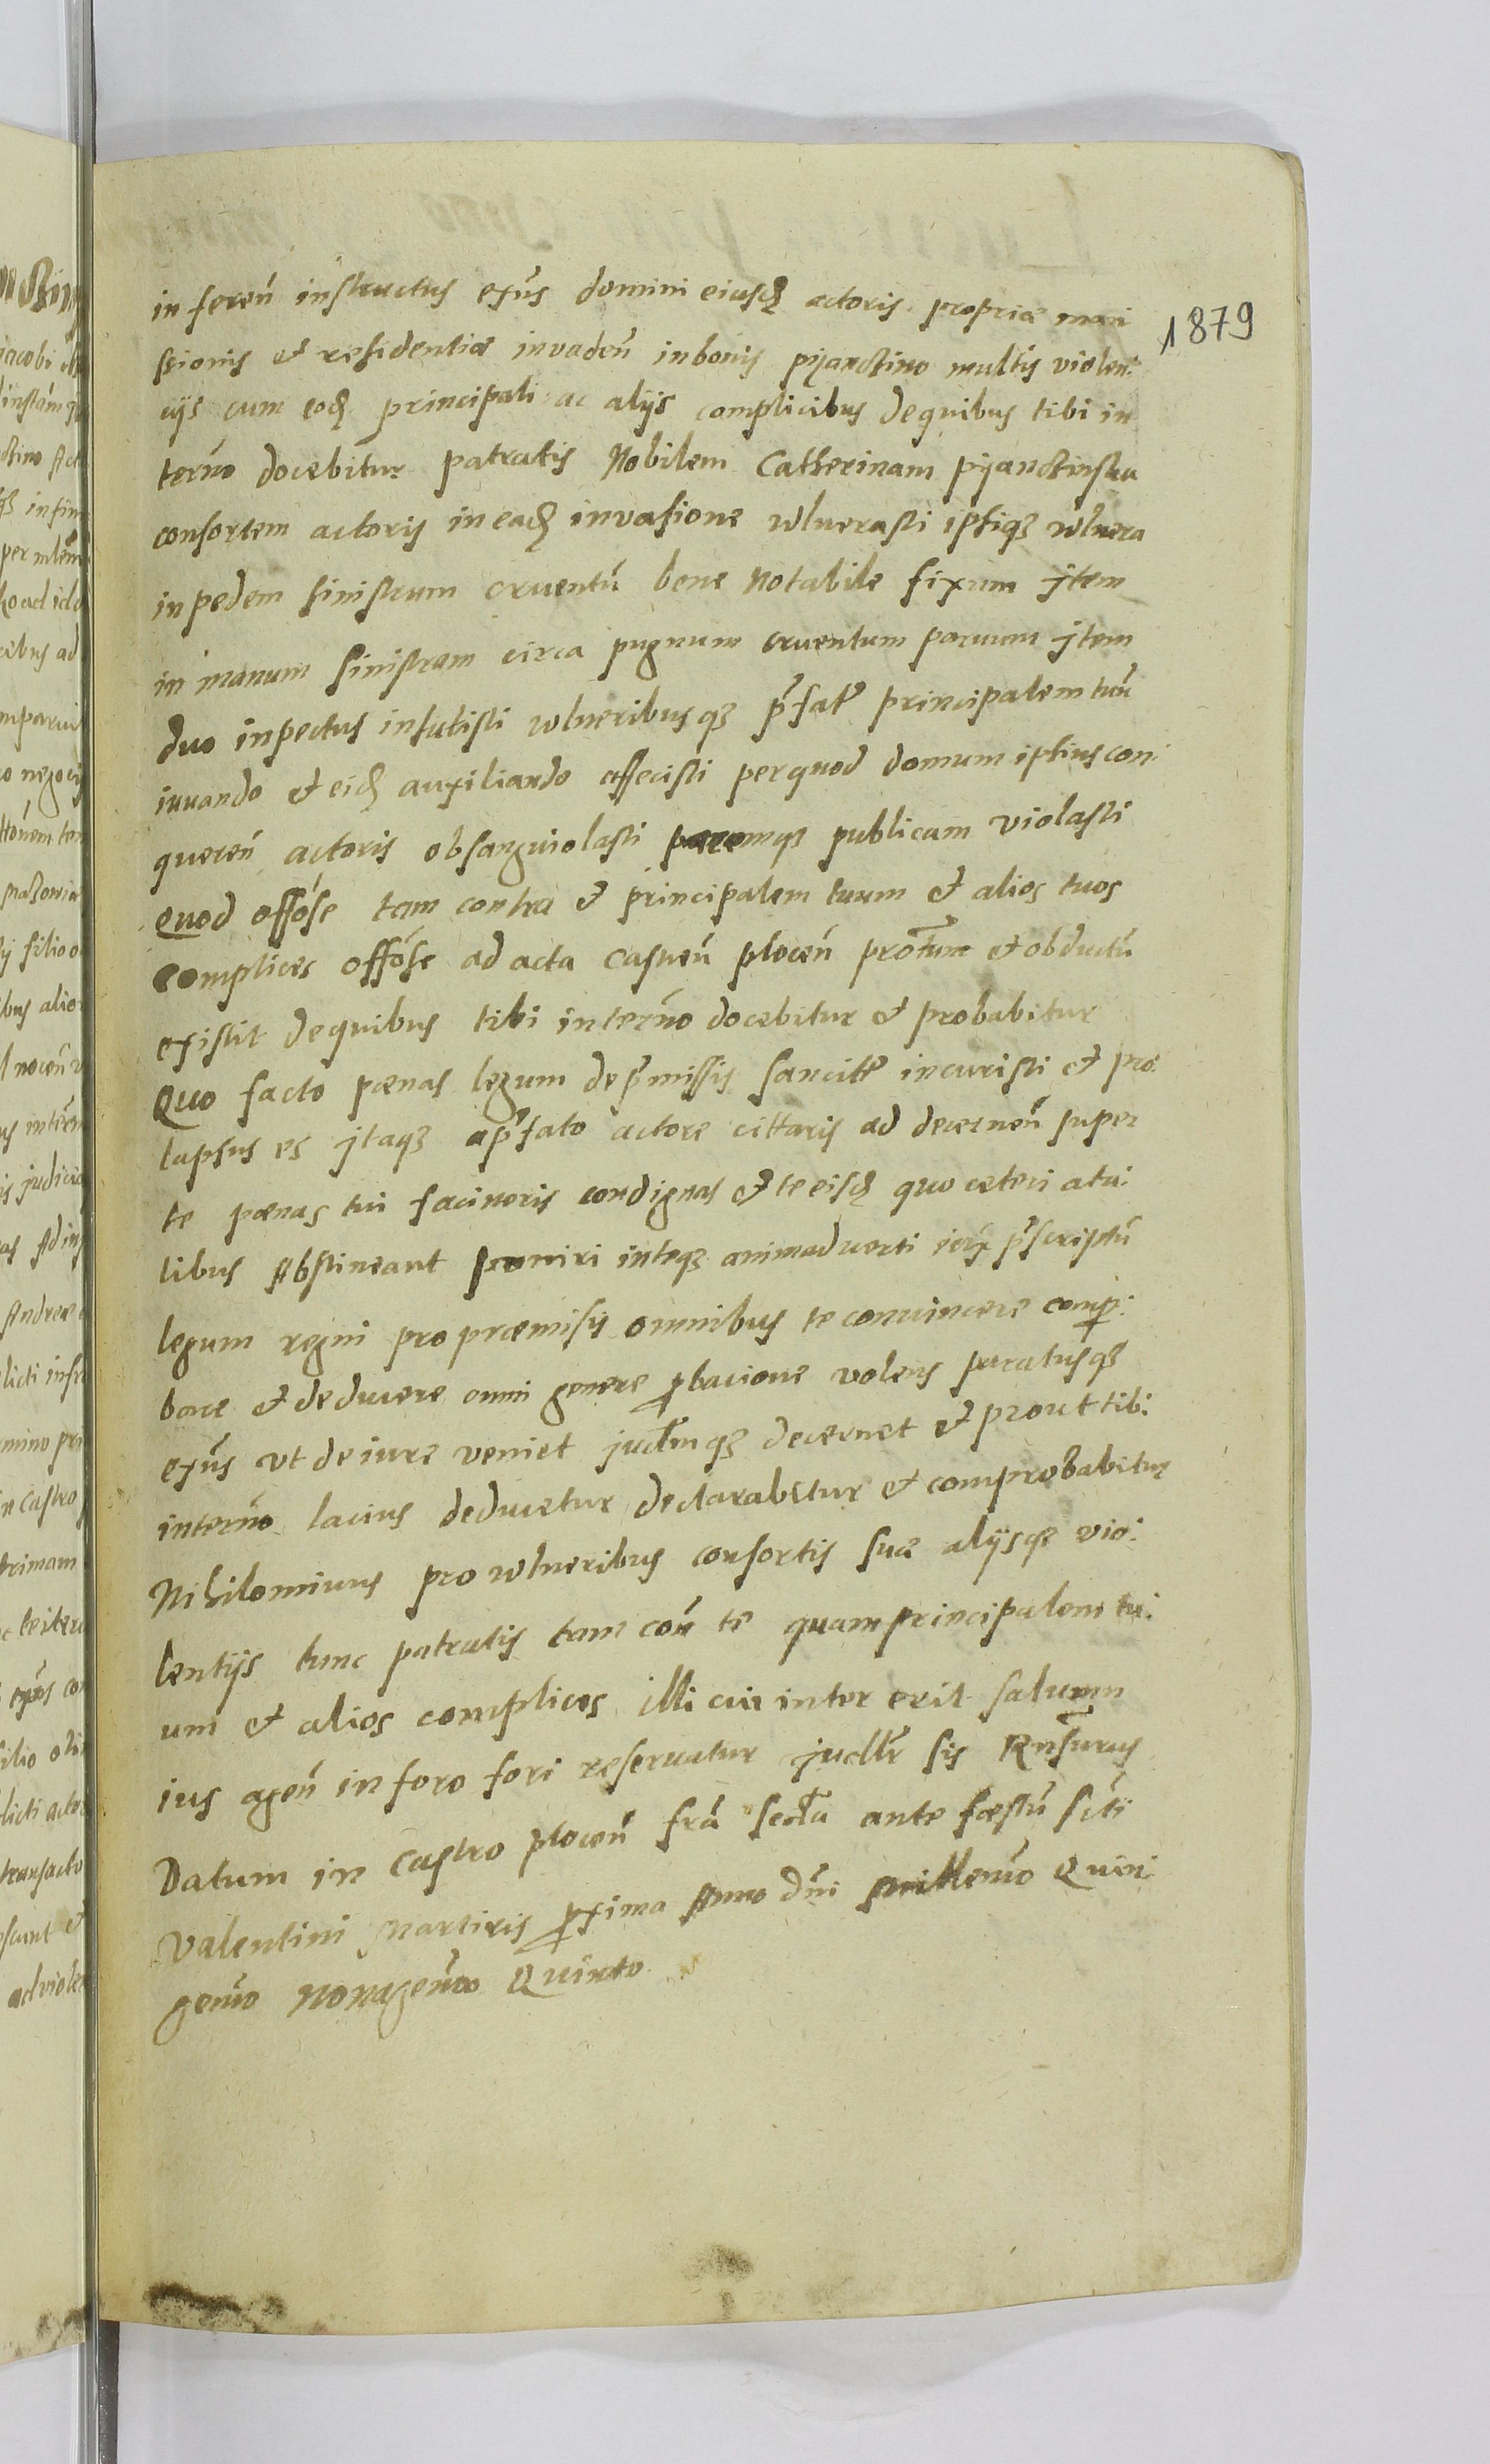 1879
inferen̄ instructus exn̄s domini eiusd actoris propriæ man
sionis et residentiæ invaden̄ in bonis pijanczino multis violen:
cijs cum eod principali ac alijs complicibus de quibus tibi in
termo docebitur patratis Nobilem Catherinam pijanczinska
consortem actoris in ead invasione vlnerasti ipsiq vlnera
in pedem sinistrum cruentū bene notabile fixum jtem
in manum sinistram circa pugnum cruentum parvum jtem
duo in pectus intulisti vlneribusq p̄fat principalem tuū
iuuando et eid auxiliando affecisti per quod domum ipsius con:
queren̄ actoris obsanguiolasti pacemq publicam violasti
Quod offōse tam contra et principalem tuum et alios tuos
complices offōse ad acta castren̄ plocen̄ protūm et obductū
existit de quibus tibi in termo docebitur et probabitur
Quo facto pœnas legum de p̄missis sancitᵉ incuristi et pro:
lapsus es jtaq a p̄fato actore cittaris ad decernen̄ super
te pœnas tui facinoris condignas et te eisd quo ceteri a ta:
libus Abstineant puniri in teq animadverti iux p̄scriptū
legum regni pro præmissis omnibus te convincere comp:
bare et deducere omni genere probacione volens paratusq
exn̄s vt de iure veniet judūmq decernet et prout tibi
in termo lacius deducetur declarabitur et comprobabitur
Nihilominus pro vlneribus consortis suæ alijsq vio:
lentijs tunc patratis tam con̄ te quam principalem tu:
um et alios complices illi cui intererit saluum
ius agen̄ in foro fori reseruatur judlr sis Rnsurus
Datum in Castro plocen̄ frā secda ante fæstū scti
Valentini Martiris proxima Anno dn̄i millemo Quin:
gemo Nonagemo Quinto